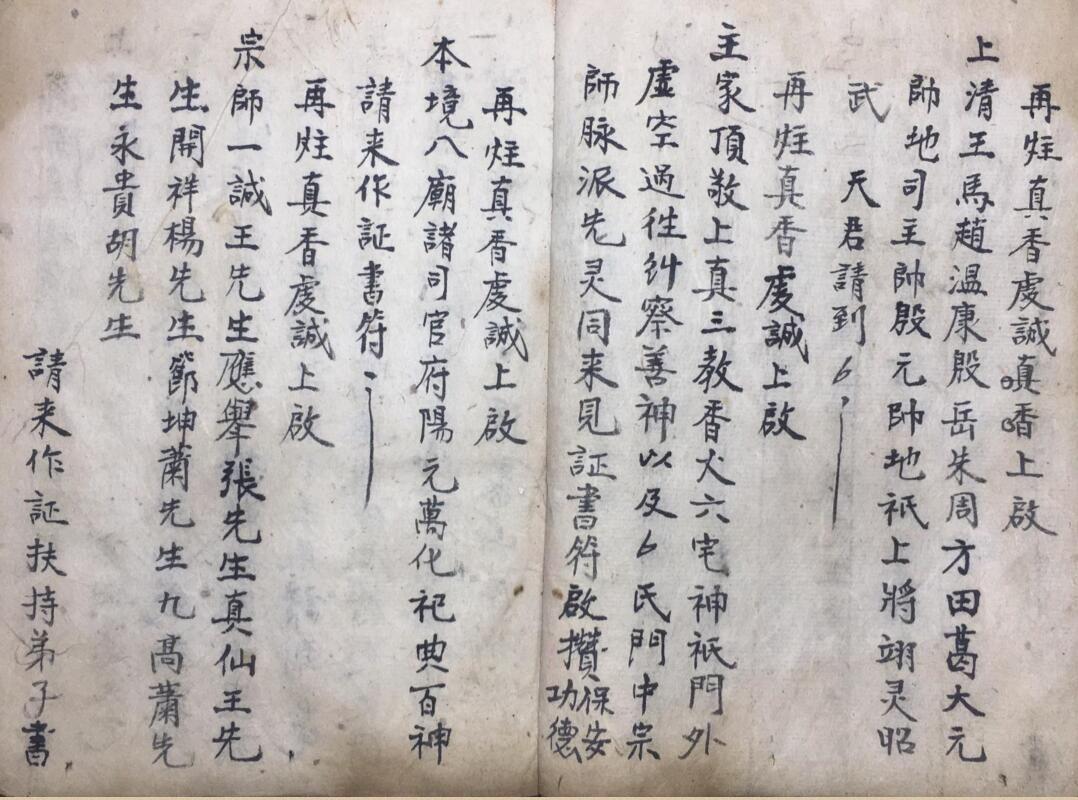 再炷真香虔誠真香上啟
上清王馬趙溫康殷岳朱周方田葛大元
帥地司主帥殷元帥地祇上將翊灵昭
武　天君請到厶
再炷真香虔誠上啟
主家頂敬上真三教香火六宅神祇門外
虛空過往糾察善神以及厶氏門中宗
師脉派先灵同来見証書符啟攢保安功德
再炷真香虔誠上啟
本境八廟諸司官府陽元萬化祀典百神
請来作証書符
再炷真香虔誠上啟
宗師一誠王先生應舉張先生真仙王先
生開祥楊先生鄧坤蕭先生九高蕭先
生永貴胡先生
請来作証扶持弟子書